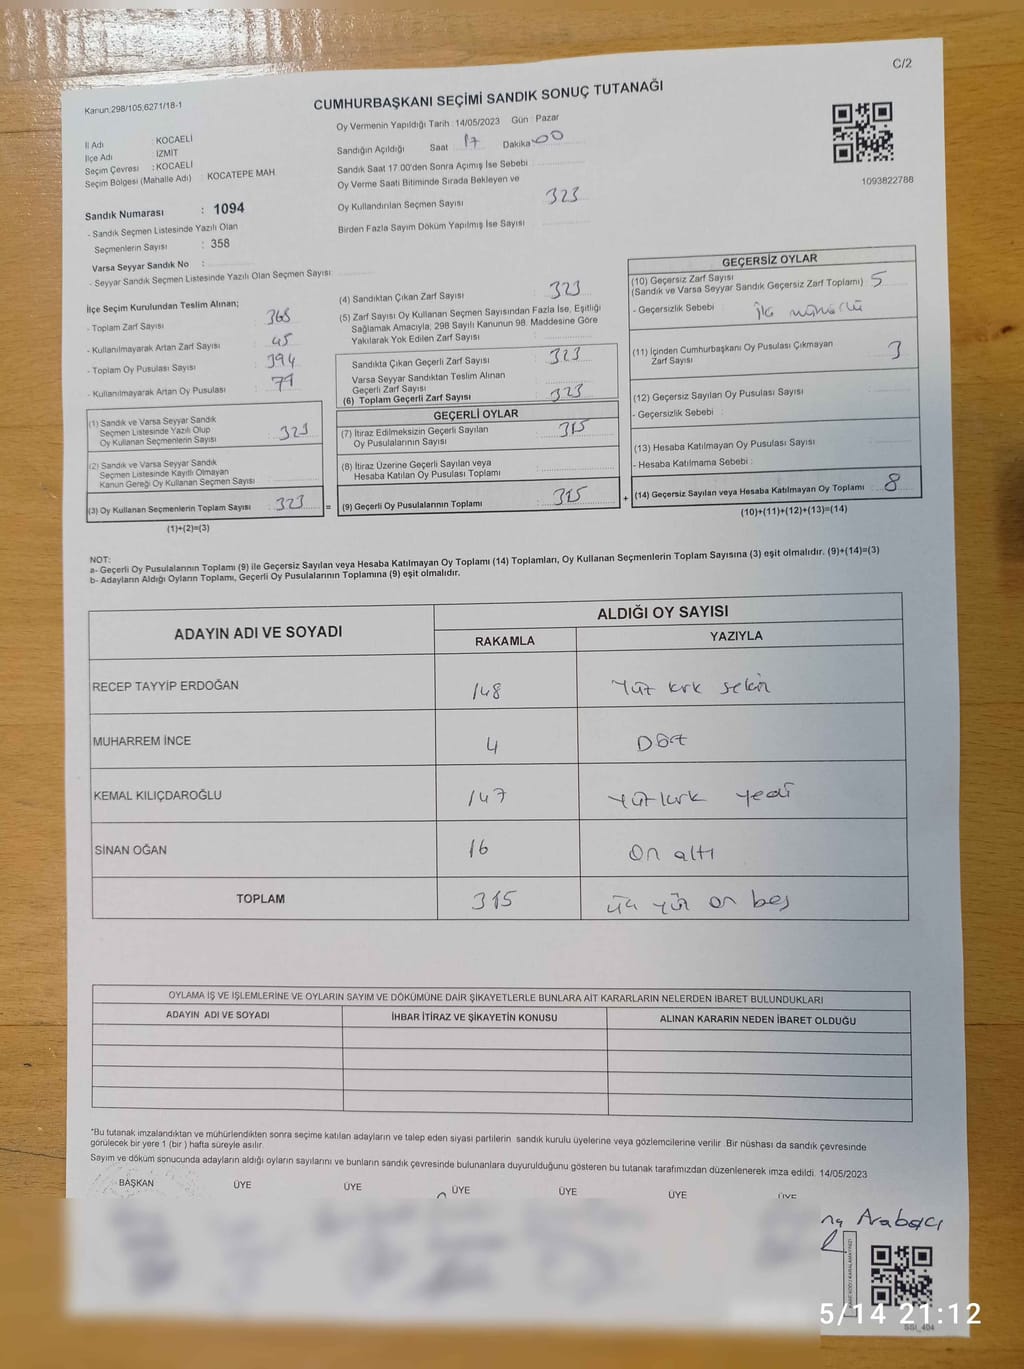 C/2
Kanun:298/105,6271/18-1
CUMHURBAŞKANI SEÇİMİ SANDIK SONUÇ TUTANAĞI
İl Adı : KOCAELİ
İlçe Adı İZMİT
Seçim Çevresi : KOCAELİ
Seçim Bölgesi (Mahalle Adı) : KOCATEPE MAH.
Oy Vermenin Yapıldığı Tarih :14/05/2023 Gün : Pazar
Sandığın Açıldığı Saat 17 Dakika 00
Sandık Saat 17.00'den Sonra Açımış İse Sebebi
Oy Verme Saati Bitiminde Sırada Bekleyen ve
Oy Kullandırılan Seçmen Sayısı 323
Birden Fazla Sayım Döküm Yapılmış İse Sayısı
1093822788
Sandık Numarası : 1094
- Sandık Seçmen Listesinde Yazılı Olan
Seçmenlerin Sayısı : 358
Varsa Seyyar Sandık No :
- Seyyar Sandık Seçmen Listesinde Yazılı Olan Seçmen Sayısı:
İlçe Seçim Kurulundan Teslim Alınan;
- Toplam Zarf Sayısı 368
- Kullanılmayarak Artan Zarf Sayısı 45
- Toplam Oy Pusulası Sayısı 394
- Kullanılmayarak Artan Oy Pusulası 71
(1) Sandık ve Varsa Seyyar Sandık
Seçmen Listesinde Yazılı Olup
Oy Kullanan Seçmenlerin Sayısı 323
(2) Sandık ve Varsa Seyyar Sandık
Seçmen Listesinde Kayıtlı Olmayan
Kanun Gereği Oy Kullanan Seçmen Sayısı
(3) Oy Kullanan Seçmenlerin Toplam Sayısı 323 =
(1)+(2)=(3)
(4) Sandıktan Çıkan Zarf Sayısı 323
(5) Zarf Sayısı Oy Kullanan Seçmen Sayısından Fazla İse, Eşitliği
Sağlamak Amacıyla, 298 Sayılı Kanunun 98. Maddesine Göre
Yakılarak Yok Edilen Zarf Sayısı
Sandıkta Çıkan Geçerli Zarf Sayısı 323
Varsa Seyyar Sandıktan Teslim Alınan
Geçerli Zarf Sayısı
(6) Toplam Geçerli Zarf Sayısı 323
GEÇERLİ OYLAR
(7) İtiraz Edilmeksizin Geçerli Sayılan
Oy Pusulalarının Sayısı 315
(8) İtiraz Üzerine Geçerli Sayılan veya
Hesaba Katılan Oy Pusulası Toplamı
(9) Geçerli Oy Pusulalarının Toplamı 315 +
GEÇERSİZ OYLAR
(10) Geçersiz Zarf Sayısı
(Sandık ve Varsa Seyyar Sandık Geçersiz Zarf Toplamı) 5
- Geçersizlik Sebebi :
(11) İçinden Cumhurbaşkanı Oy Pusulası Çıkmayan
Zarf Sayısı 3
(12) Geçersiz Sayılan Oy Pusulası Sayısı
- Geçersizlik Sebebi :
(13) Hesaba Katılmayan Oy Pusulası Sayısı
- Hesaba Katılmama Sebebi :
(14) Geçersiz Sayılan veya Hesaba Katılmayan Oy Toplamı 8
(10)+(11)+(12)+(13)=(14)
NOT:
a- Geçerli Oy Pusulalarının Toplamı (9) ile Geçersiz Sayılan veya Hesaba Katılmayan Oy Toplamı (14) Toplamları, Oy Kullanan Seçmenlerin Toplam Sayısına (3) eşit olmalıdır. (9)+(14)=(3)
b- Adayların Aldığı Oyların Toplamı, Geçerli Oy Pusulalarının Toplamına (9) eşit olmalıdır.
ADAYIN ADI VE SOYADI ALDIĞI OY SAYISI
RAKAMLA YAZIYLA
RECEP TAYYİP ERDOĞAN 148 Yüz kırk sekiz
MUHARREM İNCE 4 Dört
KEMAL KILIÇDAROĞLU 147 Yüz kırk yedi
SİNAN OĞAN 16 On altı
TOPLAM 315 üç yüz on beş
OYLAMA İŞ VE İŞLEMLERİNE VE OYLARIN SAYIM VE DÖKÜMÜNE DAİR ŞİKAYETLERLE BUNLARA AİT KARARLARIN NELERDEN İBARET BULUNDUKLARI
ADAYIN ADI VE SOYADI İHBAR İTİRAZ VE ŞİKAYETİN KONUSU ALINAN KARARIN NEDEN İBARET OLDUĞU
*Bu tutanak imzalandıktan ve mühürlendikten sonra seçime katılan adayların ve talep eden siyasi partilerin sandık kurulu üyelerine veya gözlemcilerine verilir .Bir nüshası da sandık çevresinde
görülecek bir yere 1 (bir ) hafta süreyle asılır.
Sayım ve döküm sonucunda adayların aldığı oyların sayılarını ve bunların sandık çevresinde bulunanlara duyurulduğunu gösteren bu tutanak tarafımızdan düzenlenerek imza edildi. 14/05/2023
BAŞKAN ÜYE ÜYE ÜYE ÜYE ÜYE ÜYE
Arabacı
5/14 21:12